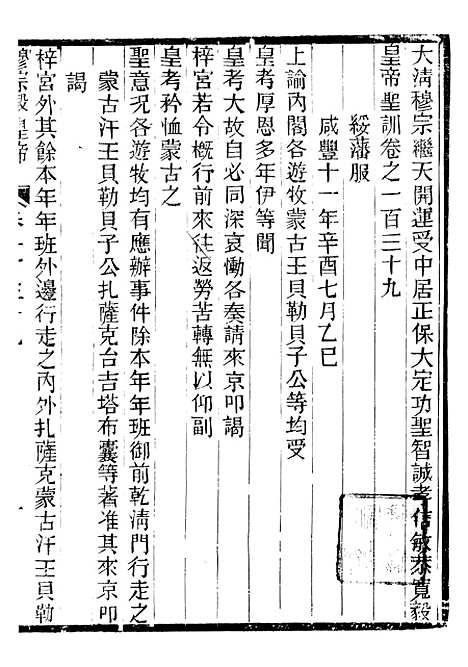 大淸穆宗繼天開運受中居正保大定功聖智誠孝信敏恭寬毅
皇帝聖訓卷之一百三十九
綏藩服
咸豐十一年辛酉七月乙巳
上諭內閣各遊牧蒙古王貝勒貝子公等均受
皇考厚恩多年伊等聞
皇考大故自必同深哀慟各奏請來京叩謁
梓宮若令概行前來往返勞苦轉無以仰副
皇考矜恤蒙古之
聖意况各遊牧均有應辦事件除本年年班御前乾淸門行走之
蒙古汗王貝勒貝子公扎薩克台吉塔布囊等著准其來京叩
謁
梓宮外其餘本年年班外邊行走之內外扎薩克蒙古汗王貝勒
穆宗毅皇帝